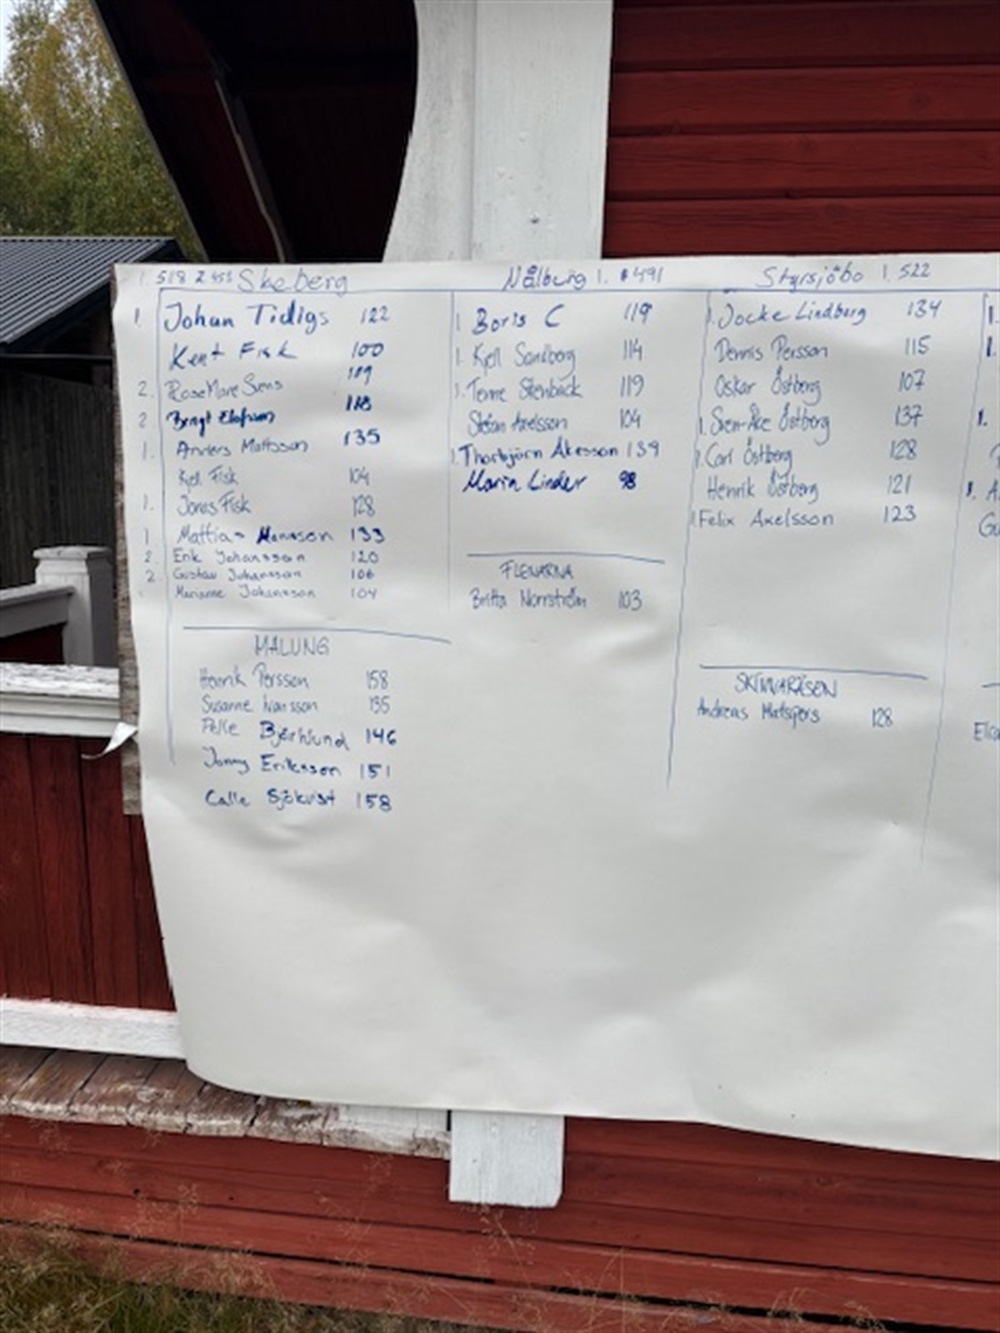 1. 518 2 453 Skeberg
1. Johan Tidigs 122
Kent Fisk 100
2. RoseMarie 119
2 Bengt Olofsson 118
1. Anders Mattsson 135
Kjell Fisk 104
1. Jonas Fisk 128
1. Mattias Månsson 133
2. Erik Johansson 120
2. Gustav Johansson 106
Marianne Johansson 104
MALUNG
Henrik Persson 158
Susanne Ivarsson 135
Pelle Björklund 146
Jonny Eriksson 151
Calle Sjökvist 158
Nålberg 1. 491
1 Boris C 119
1. Kjell Sandberg 114
1. Tenne Stenbäck 119
Stefan Axelsson 104
1. Thorbjörn Åkesson 139
Maria Linder 98
FLENARNA
Britta Norrström 103
Styrsjöbo 1. 522
1. Jocke Lindberg 134
Dennis Persson 115
Oskar Östberg 107
1. Sven-Åke Östberg 137
1. Carl Östberg 128
Henrik Östberg 121
1 Felix Axelsson 123
SKINNARÅSEN
Andreas Matspers 128
1.
1.
1.
1.